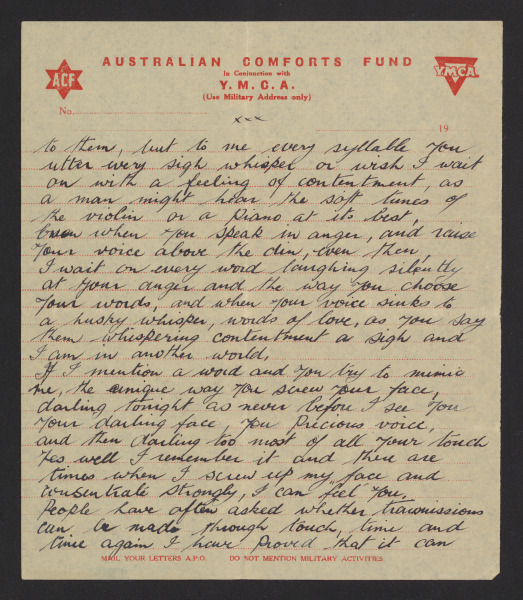 ACF
AUSTRALIAN COMFORTS FUND
In Conjunction with
Y.M.C.A.
(Use Military Address only)
YMCA
No.
xxx
19
to them, but to me every syllable you
utter every sigh whisper or wish I wait
on with a feeling of contentment, as
a man might hear the soft tunes of
the violin or a piano at its best,
even when you speak in anger, and raise
your voice above the din, even then,
I wait on every word laughing silently
at your anger and the way you choose
your words, and when your voice sinks to
a husky whisper, words of love, as you say
them whispering contentment a sigh and
I am in another world,
If I mention a word and you try to mimic
me, the unique way you screw your face,
darling tonight as never before I see you
your darling face, you precious voice,
and then darling too most of all your touch
yes well I remember it and there are
times when I screw up my face and
consentrate strongly, I can feel you,
People have often asked whether transmissions
can be made through touch, time and
time again I have proved that it can
MAIL YOUR LETTERS A.P.O. DO NOT MENTION MILITARY ACTIVITIES